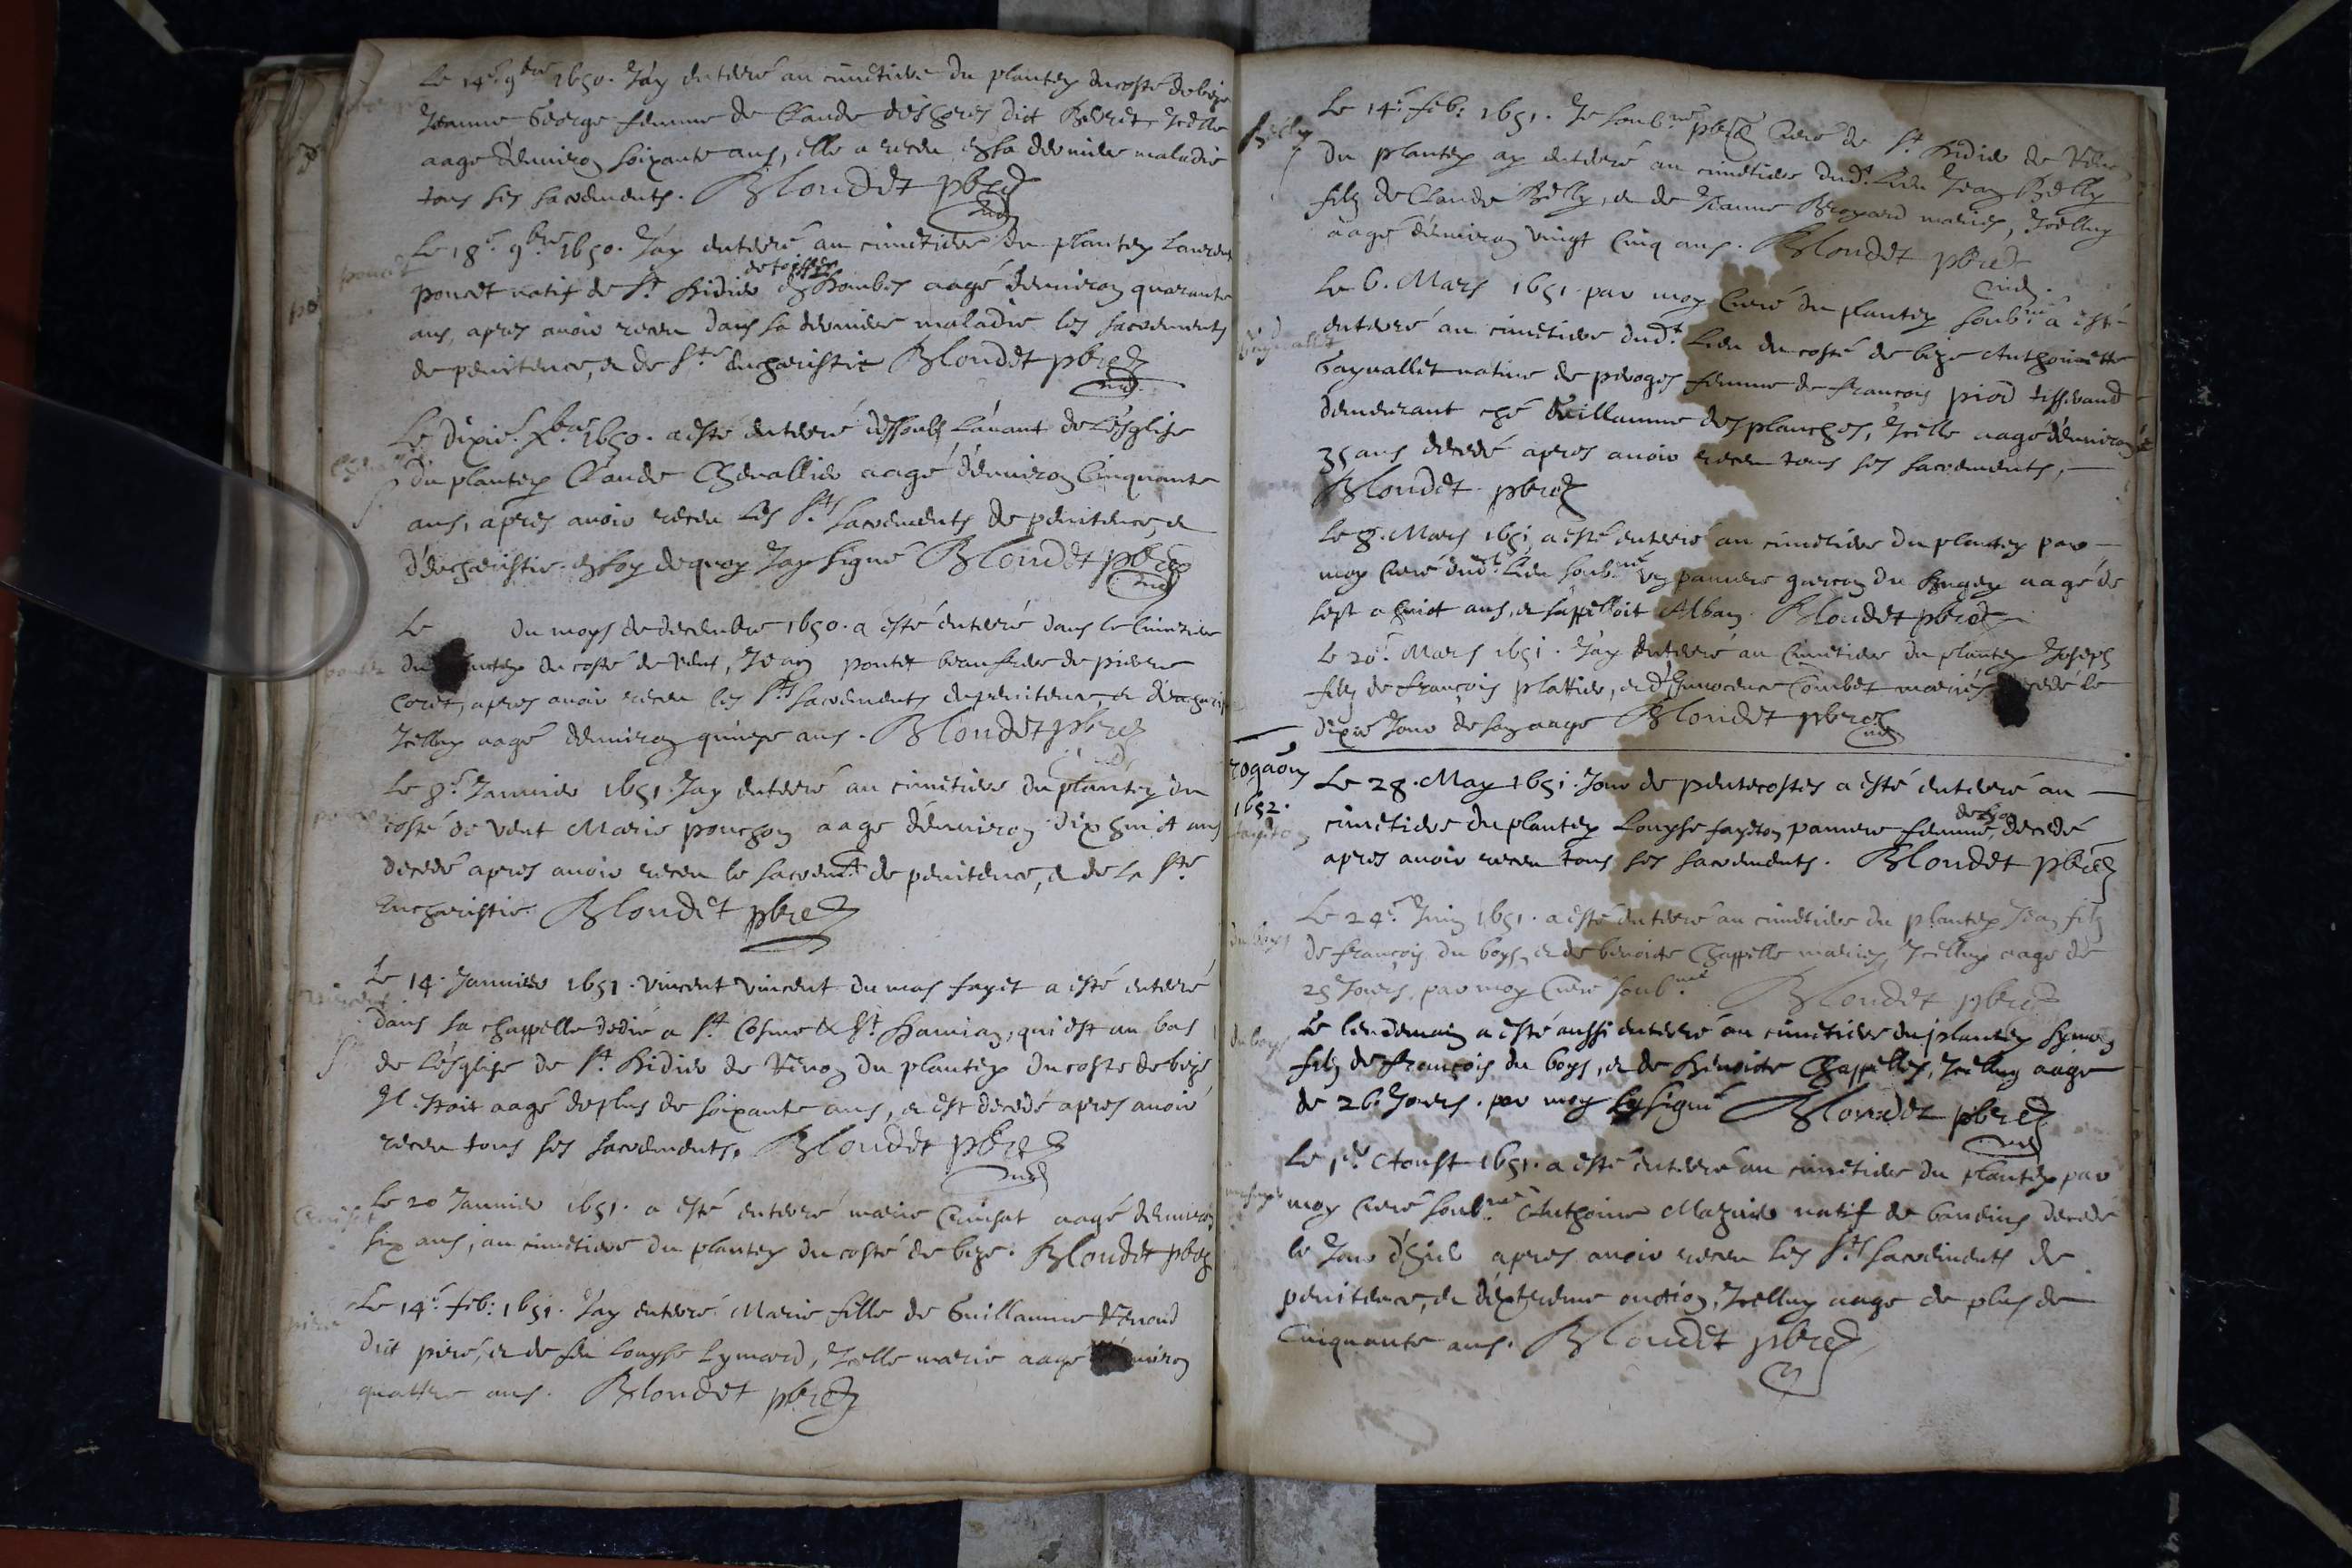 Le 14.e 9bre 1650. Jay enterré au cimetiere du plantey du costé de bize
Jeanne George femme de Claude dict Icelle
aagé d'environ soixante ans, elle a receu en sa derniere maladie
tous ses sacrements. Blondet pbre
Le 18.e 9bre 1650. Jay enterré au cimetiere du plantey Laurent
ponert
ponet natif de St. Didier de toissey en Dombes aagé denviron quarante
ans, apres avoir receu dans sa derniere maladie les sacrements
de penitence, & de Ste. eucharistie Blondet pbre
Le dixie. Xbre 1650. a esté enterré dessoubs Lavant de L'esglise
du plantey Claude Chevallier aagé d'environ Cinquante
ans, apres avoir receu les Sts. sacrements de penitence, &
d'eucharistie. en foy de quoy Jay signé Blondet pbre
Le du moys de decembre 1650. a esté enterré dans le Cimetiere
du costé de vent, Jean pontet beaufrere de pierre
Coret, apres avoir receu les Sts. sacrements de penitence, & d'eucharis
Icelluy aagé denviron quinze ans. Blondet pbre
Le 8.e Janvier 1651. Jay enterré au cimetiere du plantey du
costé de vent Marie pouchon aagé d'environ dix huict ans
decedé apres avoir receu le sacremt. de penitence, & de la Ste.
Eucharistie. Blondet pbre
Le 14. Janvier 1651. vincent vincent du mas fayet a esté enterré
dans la chappelle dedié a St. Cosme & St. Damian, qui est au bas
de L'esglise de St. Didier de Renon du plantey du costé de bize
Il estoit aagé de plus de soixante ans, & est decedé apres avoir
receu tous ses sacrements. Blondet pbre
Cruisat
Le 20 Janvier 1651. a esté enterré marie Cruisat aagé denviron
six ans, au cimetiere du plantey du costé de bize. Blondet pbre
Le 14.e feb: 1651. Jay enterré Marie fille de Guillaume
dit piré, & de feu Louyse Lymard, Icelle marie aagé
quattre ans. Blondet pbre
Belly
Le 14.e feb: 1651. Je soub.né pbre Curé de St. Didier de Renon
du plantey ay enterré au cimetiere dudt. Lieu Jean Belly
filz de Claude Belly, & de Jeanne Brogard mariés, Icelluy
aagé d'environ vingt Cinq ans. Blondet pbre
Le 6. Mars 1651. par moy Curé du plantey soub.né a esté
enterré au cimetiere dudt. Lieu du costé de bize Anthoinette
Gayvallet native de peroges femme de francois piod tisserand
demeurant ché Guillaume des planches, Icelle aagé d'environ
35 ans decedé apres avoir receu tous ses sacrements,
Blondet pbre
Le 8. Mars 1651 a esté enterré au cimetiere du plantey par
moy Curé dudt. Lieu soub.né un pauvre garcon du Bugey aagé de
sept a huict ans, & s'appelloit Alban. Blondet pbre
Le 20.e Mars 1651. Jay enterré au Cimetiere du plantey Joseph
filz de francois plattier, & d'Innocence Combet mariés decedé le
dixie Jour de son aage Blondet pbre
rogaōn
1652.
faydton
Le 28. May 1651. Jour de pentecostes a esté enterré au
cimetiere du plantey Louyse faydton pauvre femme de Lyon, decedé
apres avoir receu tous ses sacrements. Blondet pbre
du boys
Le 24.e Juin 1651. a esté enterré au cimetiere du plantey Jean filz
de francois du boys, & de benoite Chappelle mariés Icelluy aagé de
25 Jours, par moy Curé soub.né Blondet pbre
du boys
Le lendemain a esté aussi enterré au cimetiere du plantey Symon
filz de francois du boys, & de Benoite Chappelle, Icelluy aagé
de 26. Jours. par moy signé Blondet pbre
Le 1er. Aoust 1651. a esté enterré au cimetiere du plantey par
moy Curé soub.né Anthoine Mazuir natif de baneins decedé
le Jour d'hier apres avoir receu les Sts. sacrements de
penitence, & d'extreme onction, Icelluy aagé de plus de
Cinquante ans. Blondet pbre